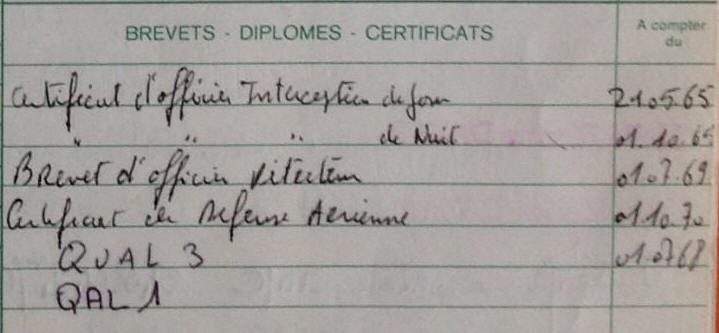 BREVETS - DIPLOMES - CERTIFICATS A compter du
Certificat d'officier Interception de jour 21.05.65
" " " de Nuit 01.10.65
Brevet d'officier détecteur 01.07.69
Certificat de Défense Aérienne 01.10.70
QUAL 3 01.07.68
QAL 1